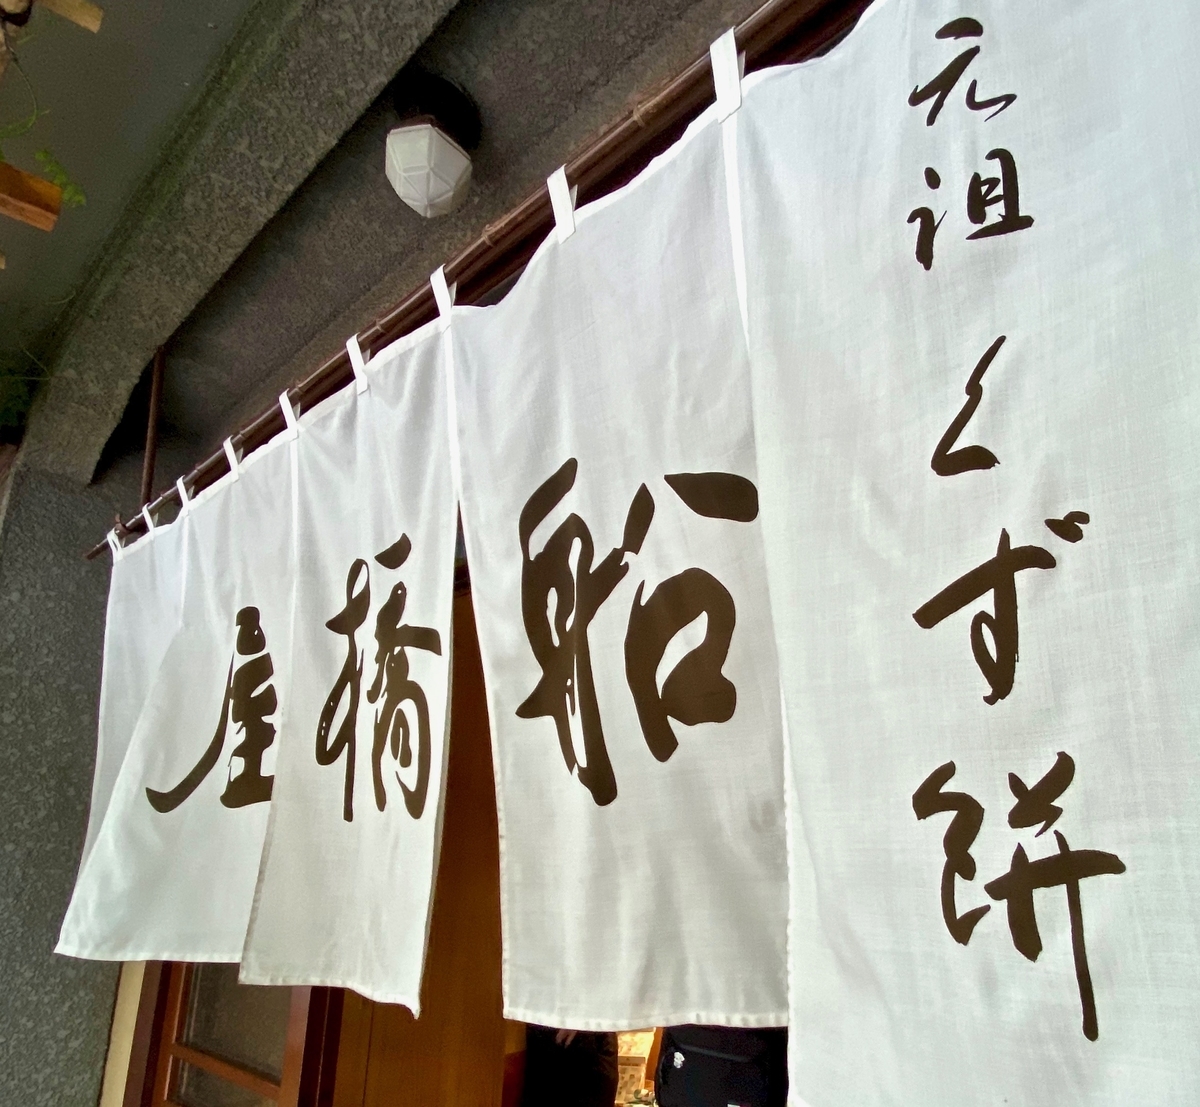 元祖くず餅
船橋屋